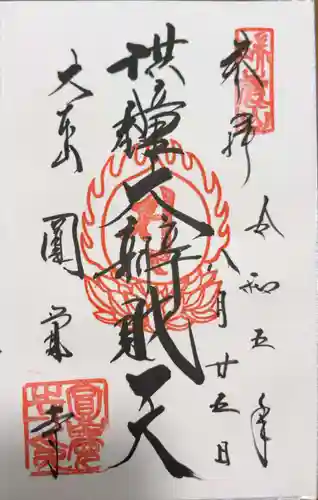 奉拝
令和五年
八月廿五日
洪鐘大辨財天
大本山
圓覚寺